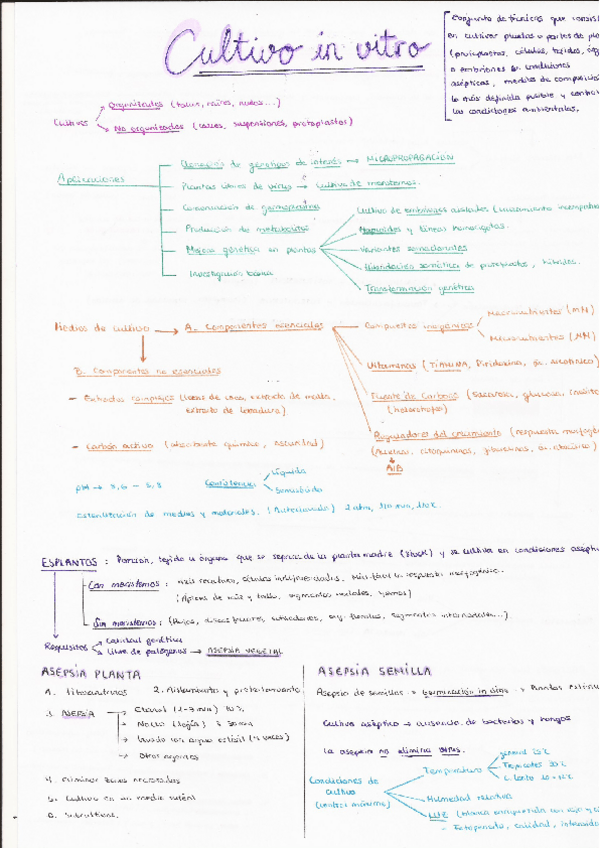 Cultivo in vitro
Conjunto de técnicas que consis
en cultivar
(protoplastos, células, tejidos, órg
o embriones en condiciones
asépticas, medios de composición
lo más definida posible y contro
las condiciones ambientales.
Cultivos
Organizados (tallos, raíces, nudos...)
No organizados (callos, suspensiones, protoplastos)
Aplicaciones
Clonación de genotipos de interés → MICROPROPAGACIÓN
Plantas libres de virus → Cultivo de meristemos.
Conservación de germoplasma
Producción de metabolitos
Mejora genética en plantas
Investigación básica
Cultivo de embriones aislados (cruzamiento incompatib
Haploides y líneas homocigotas.
Variantes somaclonales
Hibridación somática de protoplastos, híbridos.
Transformación genética
Medios de cultivo → A. Componentes esenciales
Compuestos inorgánicos
Macronutrientes (MN)
Micronutrientes (MN)
Vitaminas (TIAMINA, Piridoxina, ác. nicotínico)
Fuente de Carbono (sacarosa, glucosa,
(heterótrofos)
Reguladores del crecimiento (respuesta morfogén
(Auxinas, citoquininas, giberelinas, ác. abscísico)
AIB
B. Componentes no esenciales
- Extractos complejos (leche de coco, extracto de malta,
extracto de levadura)
- Carbón activo (absorbente químico,
pH → 5,6 - 5,8
Consistencia
Líquida
Semisólida
Esterilización de medios y materiales. (Autoclavado) 2 atm,
ESPLANTOS: Porción, tejido u órgano que se separa de la planta madre (stock) y se cultiva en condiciones asépti
Con meristemos: más reactivo, células indiferenciadas. Más fácil la respuesta morfogénica.
(Ápices de raíz y tallo, segmentos nodales, yemas)
Sin meristemos: (Hojas, discos foliares, cotiledones, org. florales, segmentos internodales...)
Requisitos
Calidad genética
Libre de patógenos → ASEPSIA VEGETAL
ASEPSIA PLANTA
1. Fitosanitarios 2. Aislamiento y pretratamiento
3. ASEPSIA
Etanol (1-3 min) 70%
NaClO (lejía) ± 30 min
Lavado con agua estéril (4 veces)
Otros agentes
4. Eliminar zonas necrosadas
5. Cultivo en un medio estéril
6. Subcultivos.
ASEPSIA SEMILLA
Asepsia de semillas → Germinación in vitro → Plantas estéril
Cultivo aséptico → ausencia de bacterias y hongos
La asepsia no elimina virus.
Condiciones de
cultivo
(control máximo)
Temperatura
general 25°C
Tropicales 30°C
Humedad relativa
LUZ
- Fotoperiodo, calidad, intensida